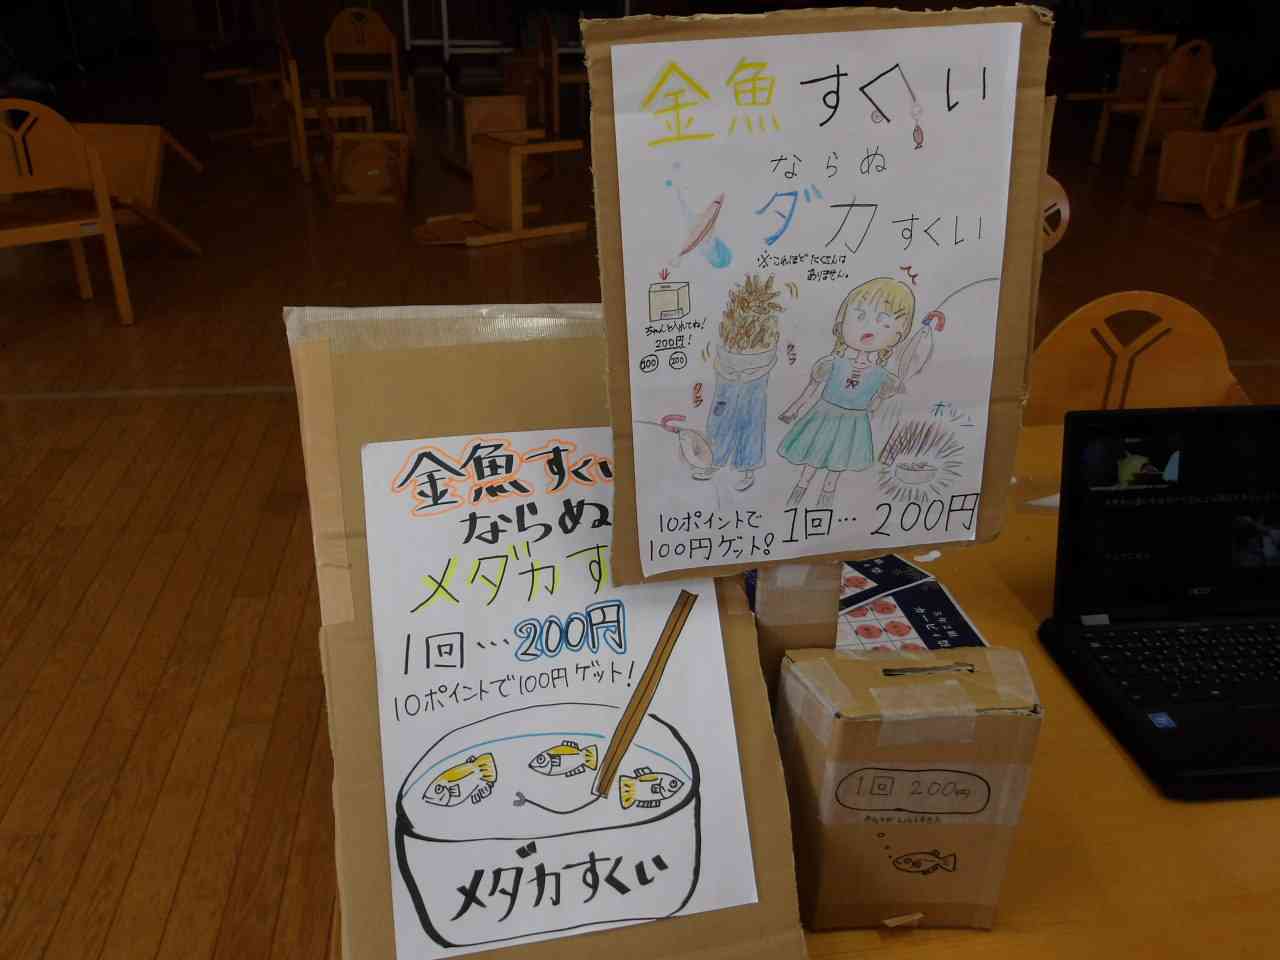 金魚すくい
ならぬ
ダカすくい
※これほどたくさんは
ありません。
ちゃんと入れてね!
200円!
100 100
10ポイントで
100円ゲット!
1回…200円
金魚すくい
ならぬ
メダカす
1回…200円
10ポイントで100円ゲット!
メダカすくい
1回 200円
acer